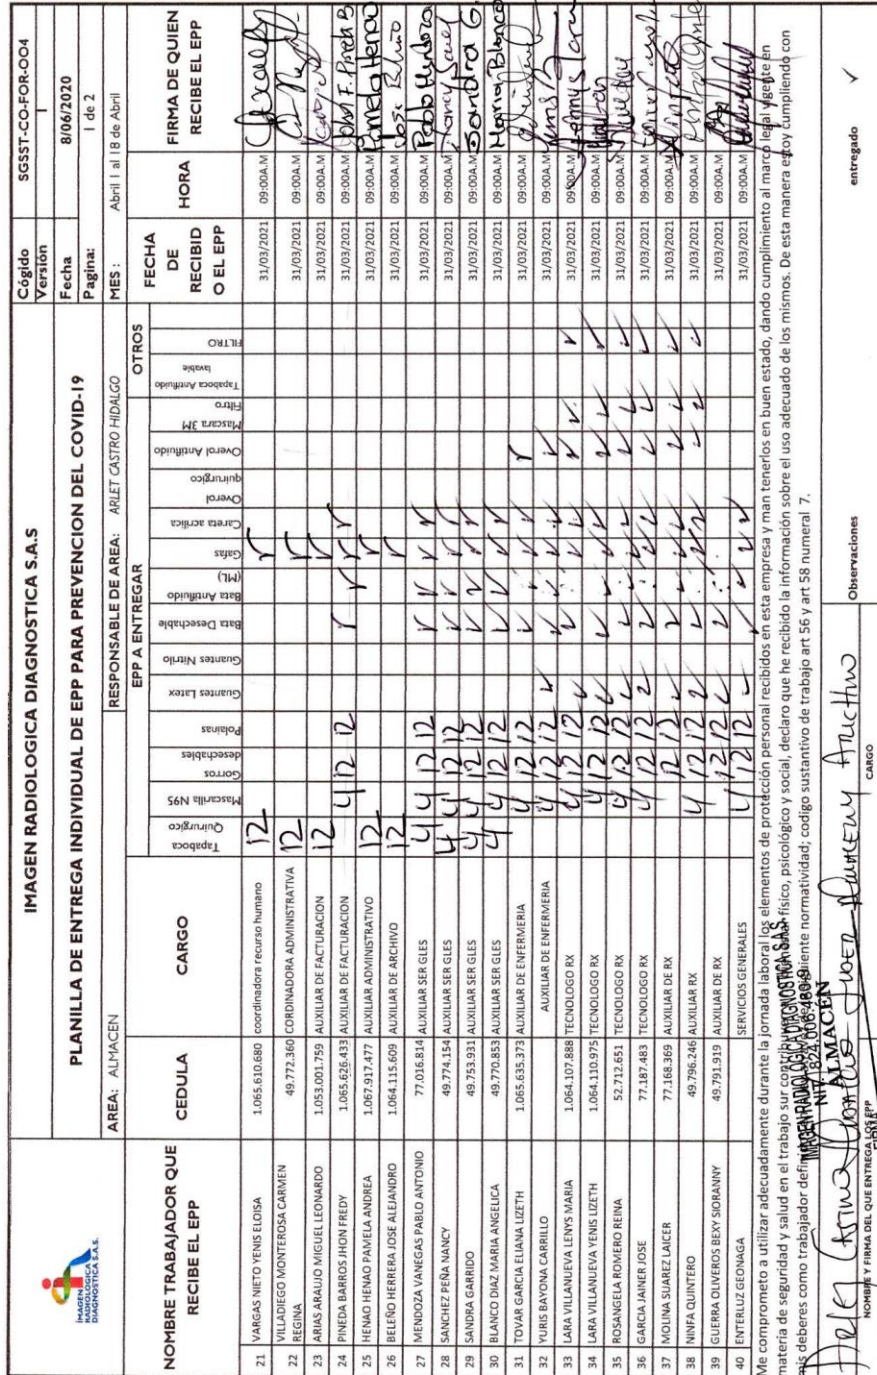 IMAGEN RADIOLOGICA DIAGNOSTICA S.A.S.
IMAGEN RADIOLOGICA DIAGNOSTICA S.A.S
PLANILLA DE ENTREGA INDIVIDUAL DE EPP PARA PREVENCION DEL COVID-19
Cógido SGSST-CO-FOR-OO4
Versión 1
Fecha 8/06/2020
Pagina: 1 de 2
AREA: ALMACEN RESPONSABLE DE AREA: ARLET CASTRO HIDALGO MES : Abril 1 al 18 de Abril
NOMBRE TRABAJADOR QUE RECIBE EL EPP CEDULA CARGO EPP A ENTREGAR OTROS FECHA DE RECIBID O EL EPP HORA FIRMA DE QUIEN RECIBE EL EPP
Tapaboca Quirurgico Mascarilla N95 Gorros desechables Polainas Guantes Latex Guantes Nitrilo Bata Desechable Bata Antifluido (ML) Gafas Careta acrilica Overol quirurgico Overol Antifluido Mascara 3M Filtro Tapaboca Antifluido lavable FILTRO
21 VARGAS NIETO YENIS ELOISA 1.065.610.680 coordinadora recurso humano 12 ✓ 31/03/2021 09:00A.M
22 VILLADIEGO MONTEROSA CARMEN REGINA 49.772.360 CORDINADORA ADMINISTRATIVA 12 ✓ 31/03/2021 09:00A.M
23 ARIAS ARAUJO MIGUEL LEONARDO 1.053.001.759 AUXILIAR DE FACTURACION 12 ✓ 31/03/2021 09:00A.M
24 PINEDA BARROS JHON FREDY 1.065.626.433 AUXILIAR DE FACTURACION 4 12 12 ✓ ✓ ✓ ✓ 31/03/2021 09:00A.M John F. Pineda B
25 HENAO HENAO PAMELA ANDREA 1.067.917.477 AUXILIAR ADMINISTRATIVO 12 ✓ 31/03/2021 09:00A.M Pamela Henao
26 BELEÑO HERRERA JOSE ALEJANDRO 1.064.115.609 AUXILIAR DE ARCHIVO 12 ✓ 31/03/2021 09:00A.M Jose Beleño
27 MENDOZA VANEGAS PABLO ANTONIO 77.016.814 AUXILIAR SER GLES 4 4 12 12 ✓ ✓ ✓ ✓ 31/03/2021 09:00A.M Pablo Mendoza
28 SANCHEZ PEÑA NANCY 49.774.154 AUXILIAR SER GLES 4 4 12 12 ✓ ✓ ✓ ✓ 31/03/2021 09:00A.M Nancy
29 SANDRA GARRIDO 49.753.931 AUXILIAR SER GLES 4 4 12 12 ✓ ✓ ✓ ✓ 31/03/2021 09:00A.M Sandra G.
30 BLANCO DIAZ MARIA ANGELICA 49.770.853 AUXILIAR SER GLES 4 4 12 12 ✓ ✓ ✓ ✓ 31/03/2021 09:00A.M Maria Blanco
31 TOVAR GARCIA ELIANA LIZETH 1.065.635.373 AUXILIAR DE ENFERMERIA 4 12 12 ✓ ✓ ✓ ✓ ✓ 31/03/2021 09:00A.M
32 YURIS BAYONA CARRILLO AUXILIAR DE ENFERMERIA 4 12 12 ✓ ✓ ✓ ✓ ✓ 31/03/2021 09:00A.M
33 LARA VILLANUEVA LENYS MARIA 1.064.107.888 TECNOLOGO RX 4 12 12 ✓ ✓ ✓ ✓ ✓ ✓ ✓ 31/03/2021 09:00A.M
34 LARA VILLANUEVA YENIS LIZETH 1.064.110.975 TECNOLOGO RX 4 12 12 ✓ ✓ ✓ ✓ ✓ ✓ ✓ 31/03/2021 09:00A.M
35 ROSANGELA ROMERO REINA 52.712.651 TECNOLOGO RX 4 12 12 ✓ ✓ ✓ ✓ ✓ ✓ ✓ 31/03/2021 09:00A.M
36 GARCIA JAINER JOSE 77.187.483 TECNOLOGO RX 4 12 12 ✓ ✓ ✓ ✓ ✓ ✓ ✓ 31/03/2021 09:00A.M
37 MOLINA SUAREZ LAICER 77.168.369 AUXILIAR DE RX 12 12 ✓ ✓ ✓ ✓ ✓ ✓ ✓ 31/03/2021 09:00A.M
38 NINFA QUINTERO 49.796.246 AUXILIAR RX 4 12 12 ✓ ✓ ✓ ✓ ✓ ✓ ✓ 31/03/2021 09:00A.M
39 GUERRA OLIVEROS BEXY SIORANNY 49.791.919 AUXILIAR DE RX 12 12 ✓ ✓ ✓ ✓ 31/03/2021 09:00A.M
40 ENTERLUZ GEONAGA SERVICIOS GENERALES 4 12 12 ✓ ✓ ✓ ✓ ✓ 31/03/2021 09:00A.M
Me comprometo a utilizar adecuadamente durante la jornada laboral los elementos de protección personal recibidos en esta empresa y man tenerlos en buen estado, dando cumplimiento al marco legal vigente en
materia de seguridad y salud en el trabajo sur físico, psicológico y social, declaro que he recibido la información sobre el uso adecuado de los mismos. De esta manera estoy cumpliendo con
mis deberes como trabajador normatividad; codigo sustantivo de trabajo art 56 y art 58 numeral 7.
IMAGEN RADIOLOGICA DIAGNOSTICA S.A.S
NIT. 824.006.480-9
ALMACEN
NOMBRE Y FIRMA DEL QUE ENTREGA LOS EPP
FIRMA
CARGO
Observaciones
entregado ✓